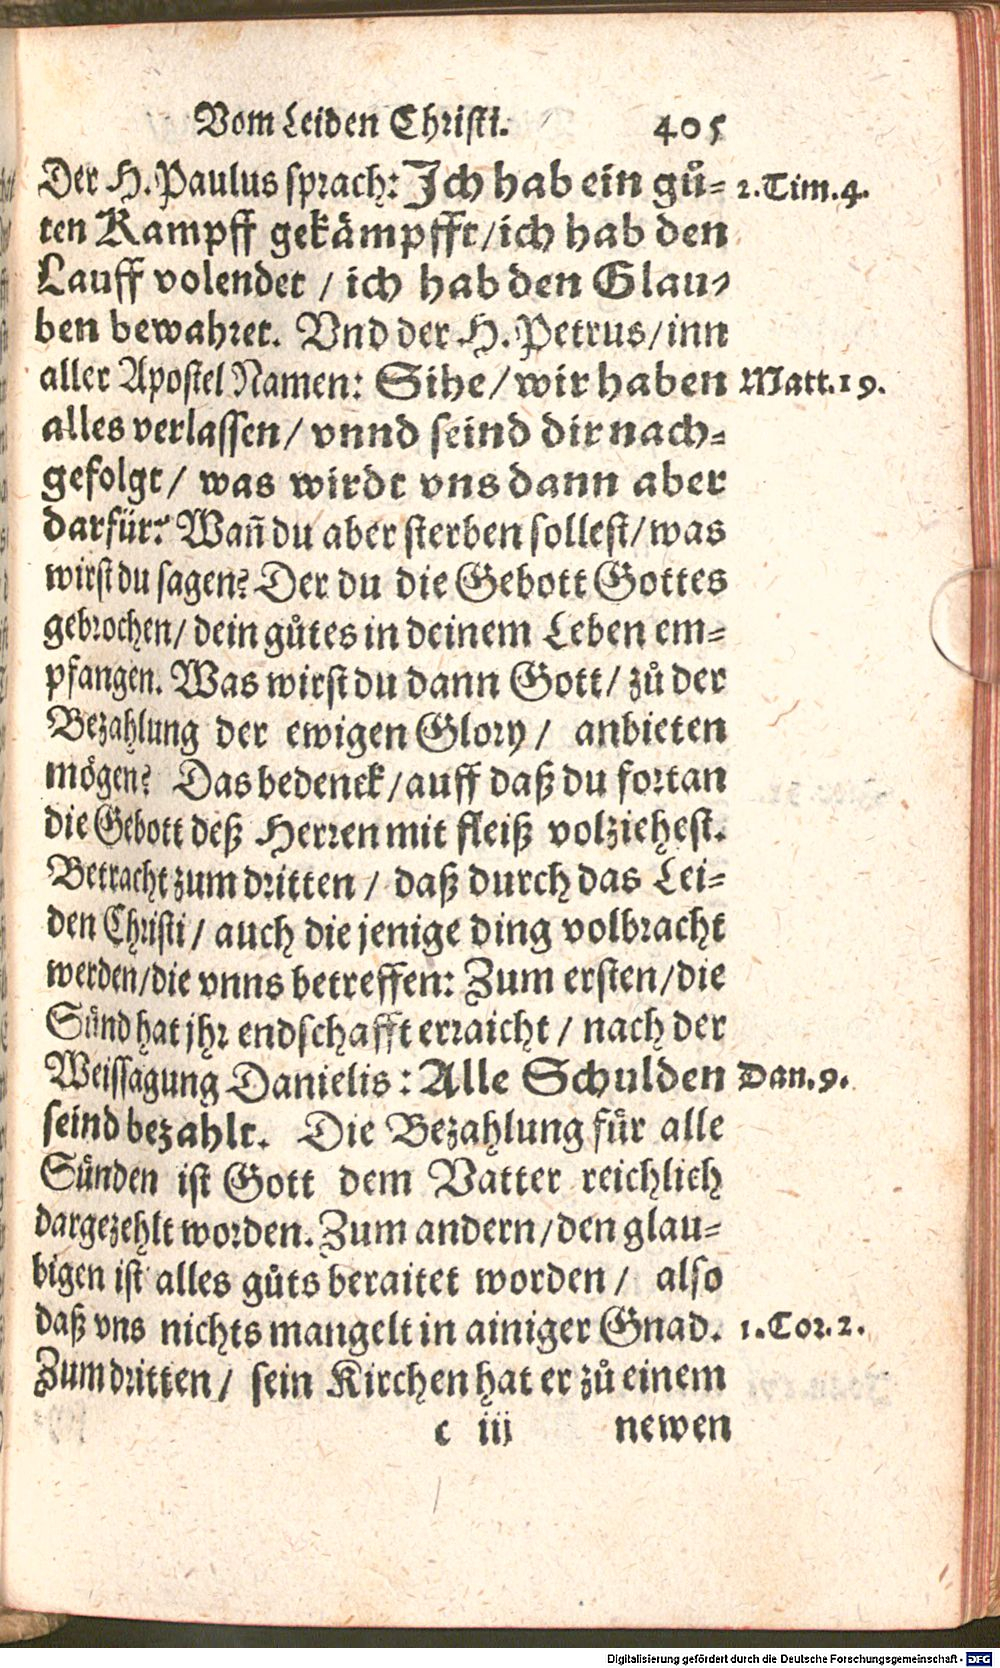 Vom Leiden Christi. 405
Der H. Paulus sprach: Ich hab ein gů- 2. Tim. 4.
ten Kampff gekämpfft/ ich hab den
Lauff volendet / ich hab den Glau-
ben bewahret. Vnd der H. Petrus/ inn
aller Apostel Namen: Sihe/ wir haben Matt. 19.
alles verlassen/ vnnd seind dir nach-
gefolgt/ was wirdt vns dann aber
darfür? Wañ du aber sterben sollest/ was
wirst du sagen? Der du die Gebott Gottes
gebrochen/ dein gůtes in deinem Leben em-
pfangen. Was wirst du dann Gott/ zů der
Bezahlung der ewigen Glory / anbieten
mögen? Das bedenck/ auff daß du fortan
die Gebott deß Herren mit fleiß volziehest.
Betracht zum dritten / daß durch das Lei-
den Christi / auch die jenige ding volbracht
werden/ die vnns betreffen: Zum ersten/ die
Sünd hat jhr endschafft erraicht / nach der
Weissagung Danielis: Alle Schulden Dan. 9.
seind bezahlt. Die Bezahlung für alle
Sünden ist Gott dem Vatter reichlich
dargezehlt worden. Zum andern/ den glau-
bigen ist alles gůts beraitet worden / also
daß vns nichts mangelt in ainiger Gnad. 1. Cor. 2.
Zum dritten / sein Kirchen hat er zů einem
c iij newen
Digitalisierung gefördert durch die Deutsche Forschungsgemeinschaft - DFG